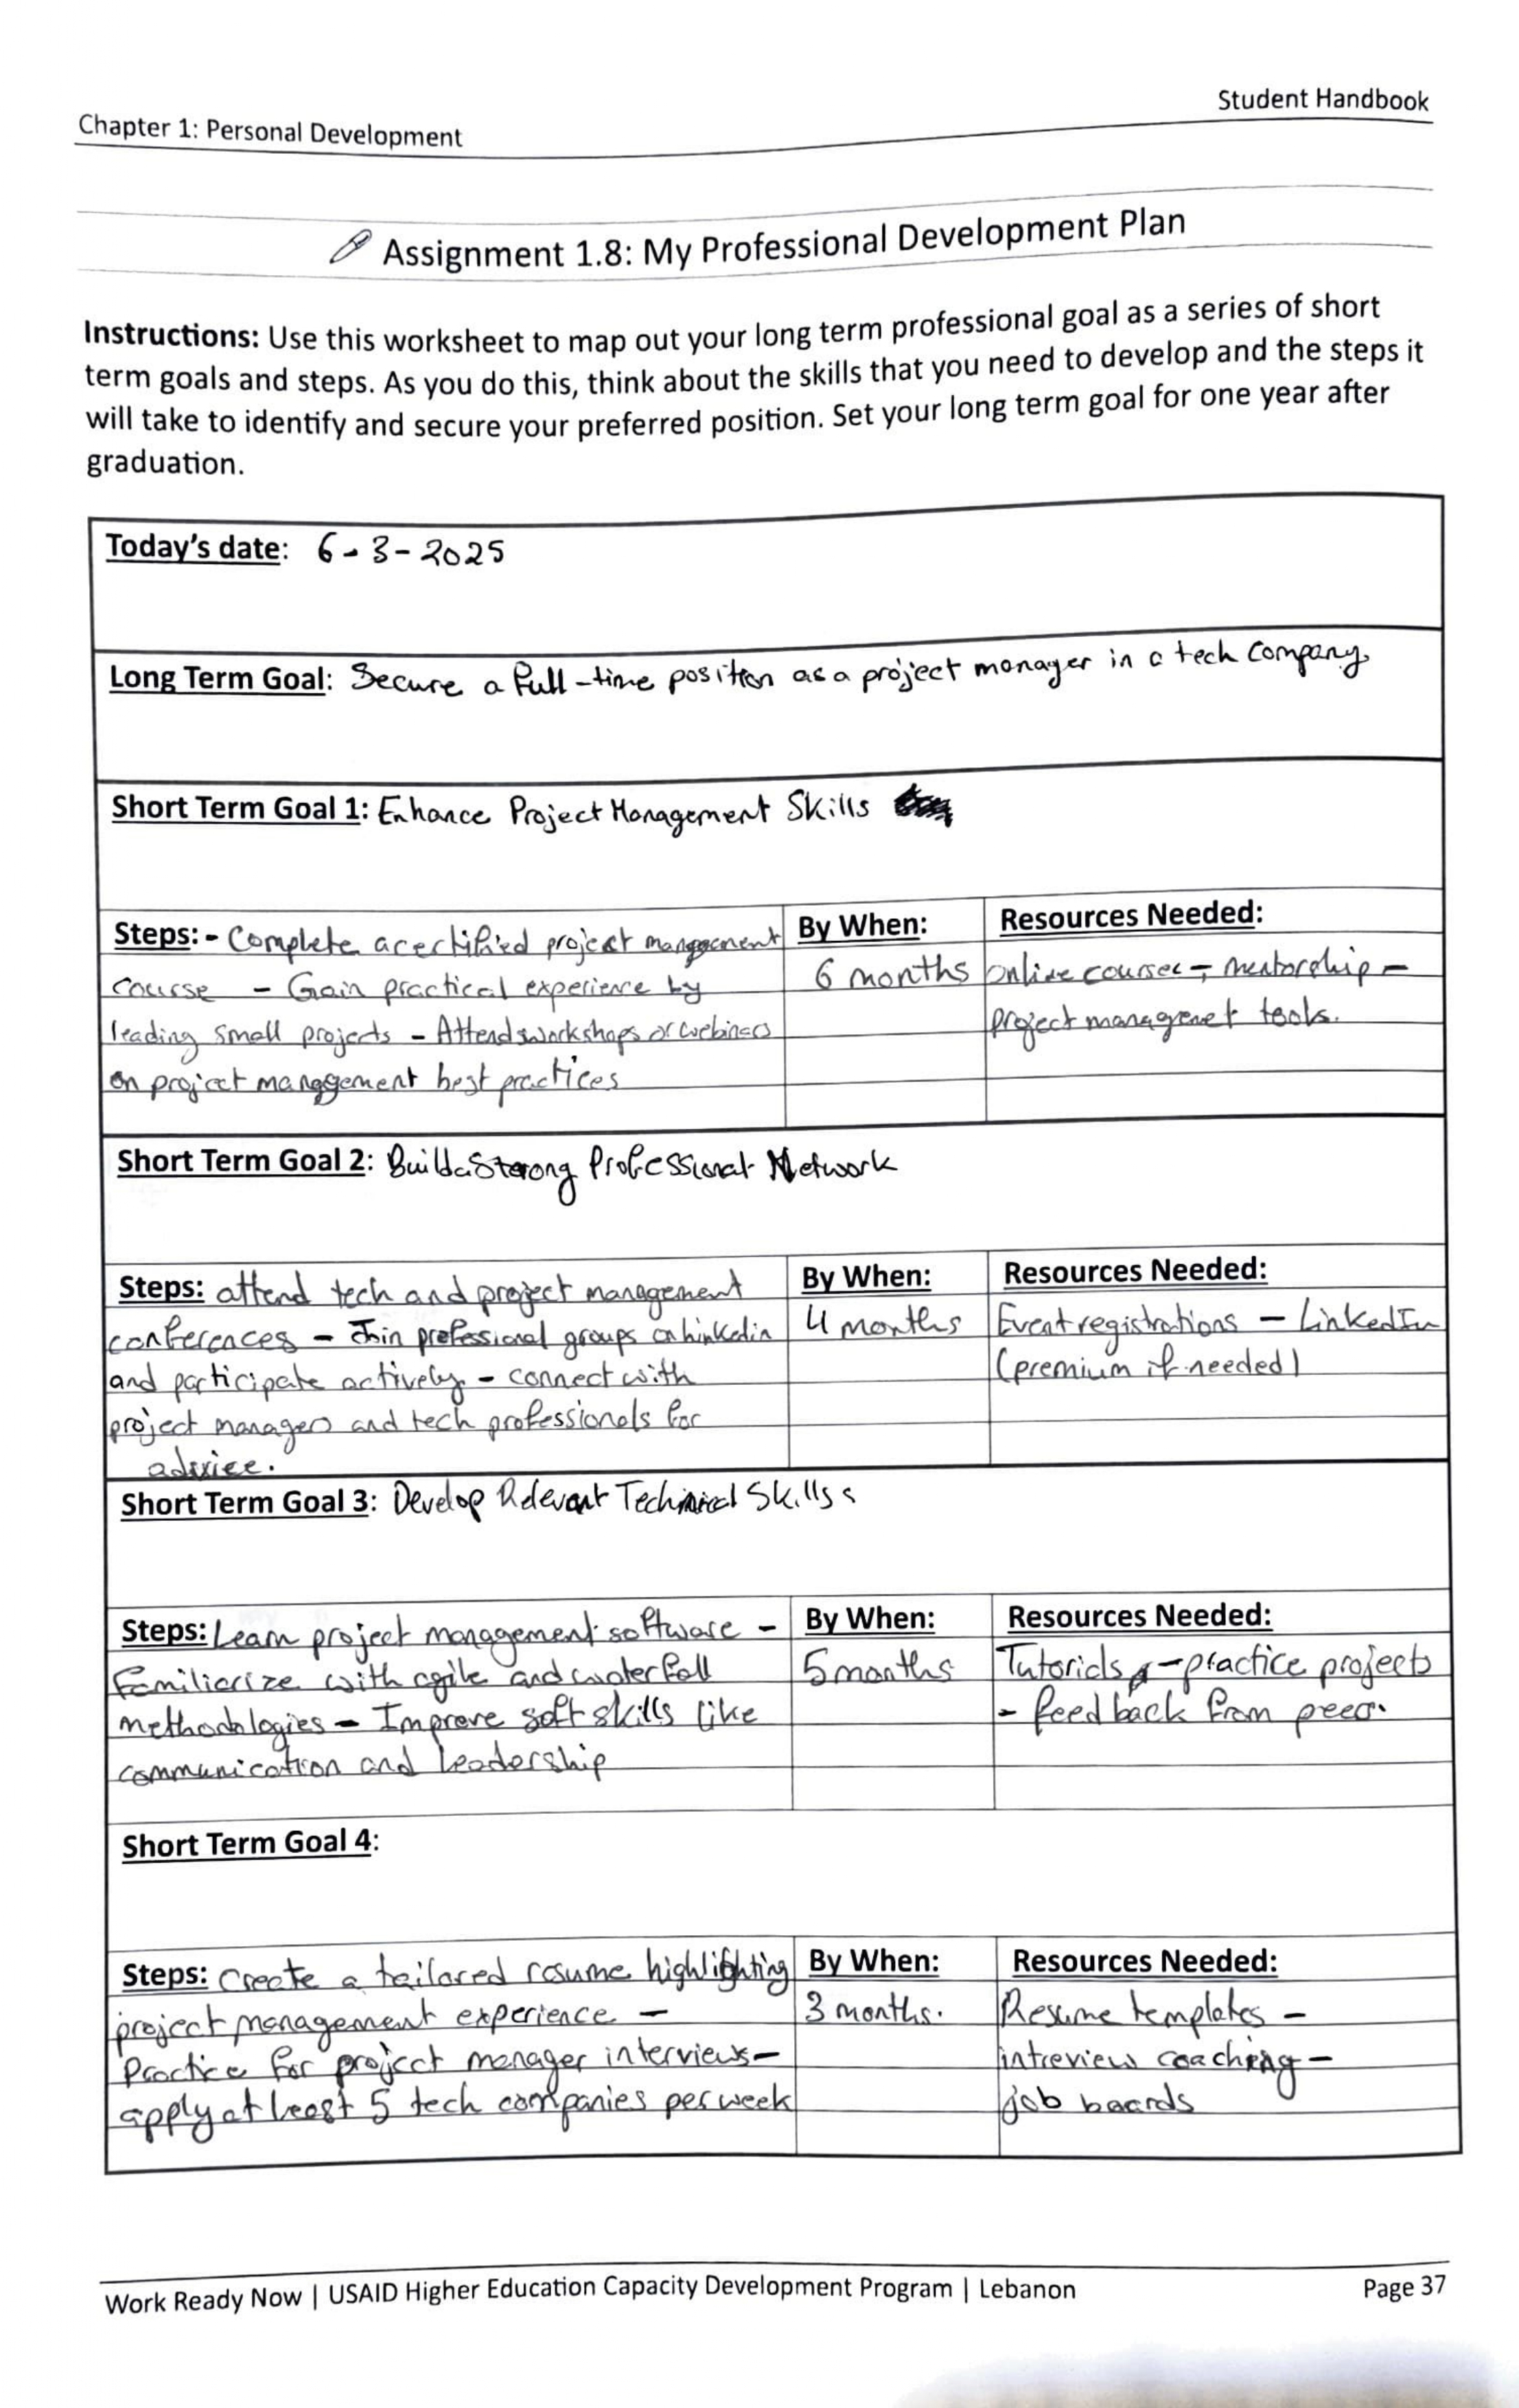 Student Handbook
Chapter 1: Personal Development
Assignment 1.8: My Professional Development Plan
Instructions: Use this worksheet to map out your long term professional goal as a series of short
term goals and steps. As you do this, think about the skills that you need to develop and the steps it
will take to identify and secure your preferred position. Set your long term goal for one year after
graduation.
Today's date: 6-3-2025
Long Term Goal: Secure a full-time position as a project manager in a tech company
Short Term Goal 1: Enhance Project Management Skills
Steps: - Complete a certified project management
course - Gain practical experience by
leading small projects - Attend workshops or webinars
on project management best practices
By When:
6 months
Resources Needed:
online courses - mentorship -
project managenet tools.
Short Term Goal 2: Build a Strong Professional Network
Steps: attend tech and project management
conferences - Join professional groups on linkedin
and participate actively - connect with
project managers and tech professionals for
advice.
By When:
4 months
Resources Needed:
Event registrations - LinkedIn
(premium if needed)
Short Term Goal 3: Develop Relevant Technical Skills
Steps: Learn project management software -
Familiarize with agile and waterfall
methodologies - Improve soft skills like
communication and leadership
By When:
5 months
Resources Needed:
Tutorials - practice projects
- feedback from peers.
Short Term Goal 4:
Steps: Create a tailored resume highlighting
project management experience -
Practice for project manager interviews -
apply at least 5 tech companies per week
By When:
3 months.
Resources Needed:
Resume templates -
intreview coaching -
job boards
Work Ready Now | USAID Higher Education Capacity Development Program | Lebanon
Page 37